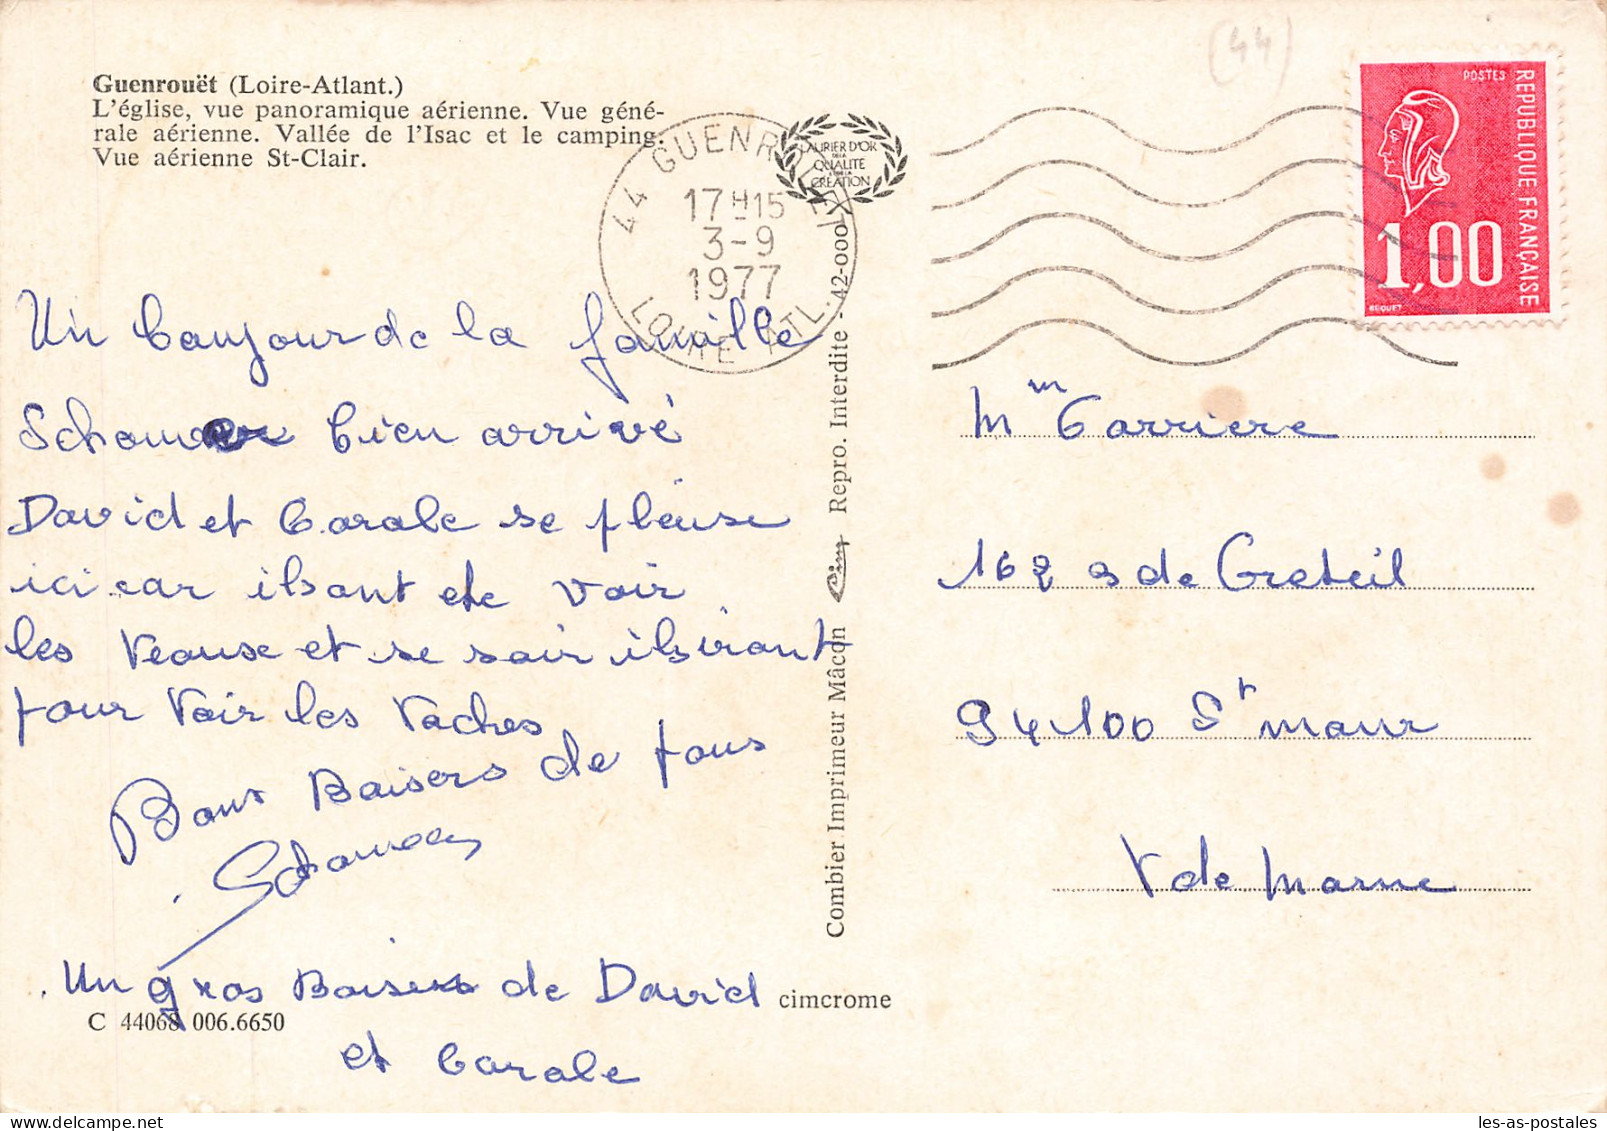 (44)
Guenrouët (Loire-Atlant.)
L'église, vue panoramique aérienne. Vue géné-
rale aérienne. Vallée de l'Isac et le camping.
Vue aérienne St-Clair.
44 GUENROUET
17 H 15
3-9
1977
LOIRE ATL.
LAURIER D'OR
DE LA
QUALITÉ
CRÉATION
POSTES
REPUBLIQUE FRANÇAISE
1,00
BEQUET
Un Bonjour de la famille
bien arrivé
David et Carole se pleuse
ici car ils ont ete voir
les Veause et se soir ils iront
pour Voir les Vaches
Bons Baisers de tous
Un gros Baisers de David
et Carole
C 44068 006.6650
cimcrome
Combier Imprimeur Mâcon Cim Repro. Interdite - 42-000
Mm Carriere
162 de Creteil
94100 St maur
V de Marne
les-as-postales
delcampe.net